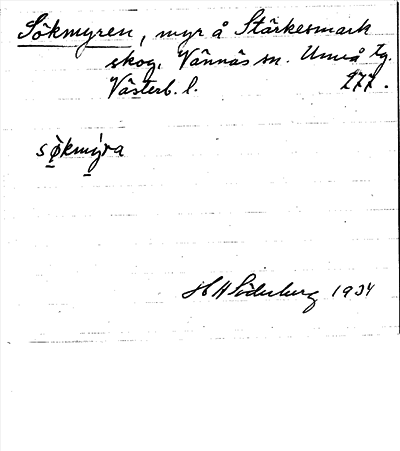 Sökmyren, myr å Stärkesmark
skog, Vännäs sn. Umeå tg.
Västerb. l. 277.
sökmýra
H H Söderberg 1934